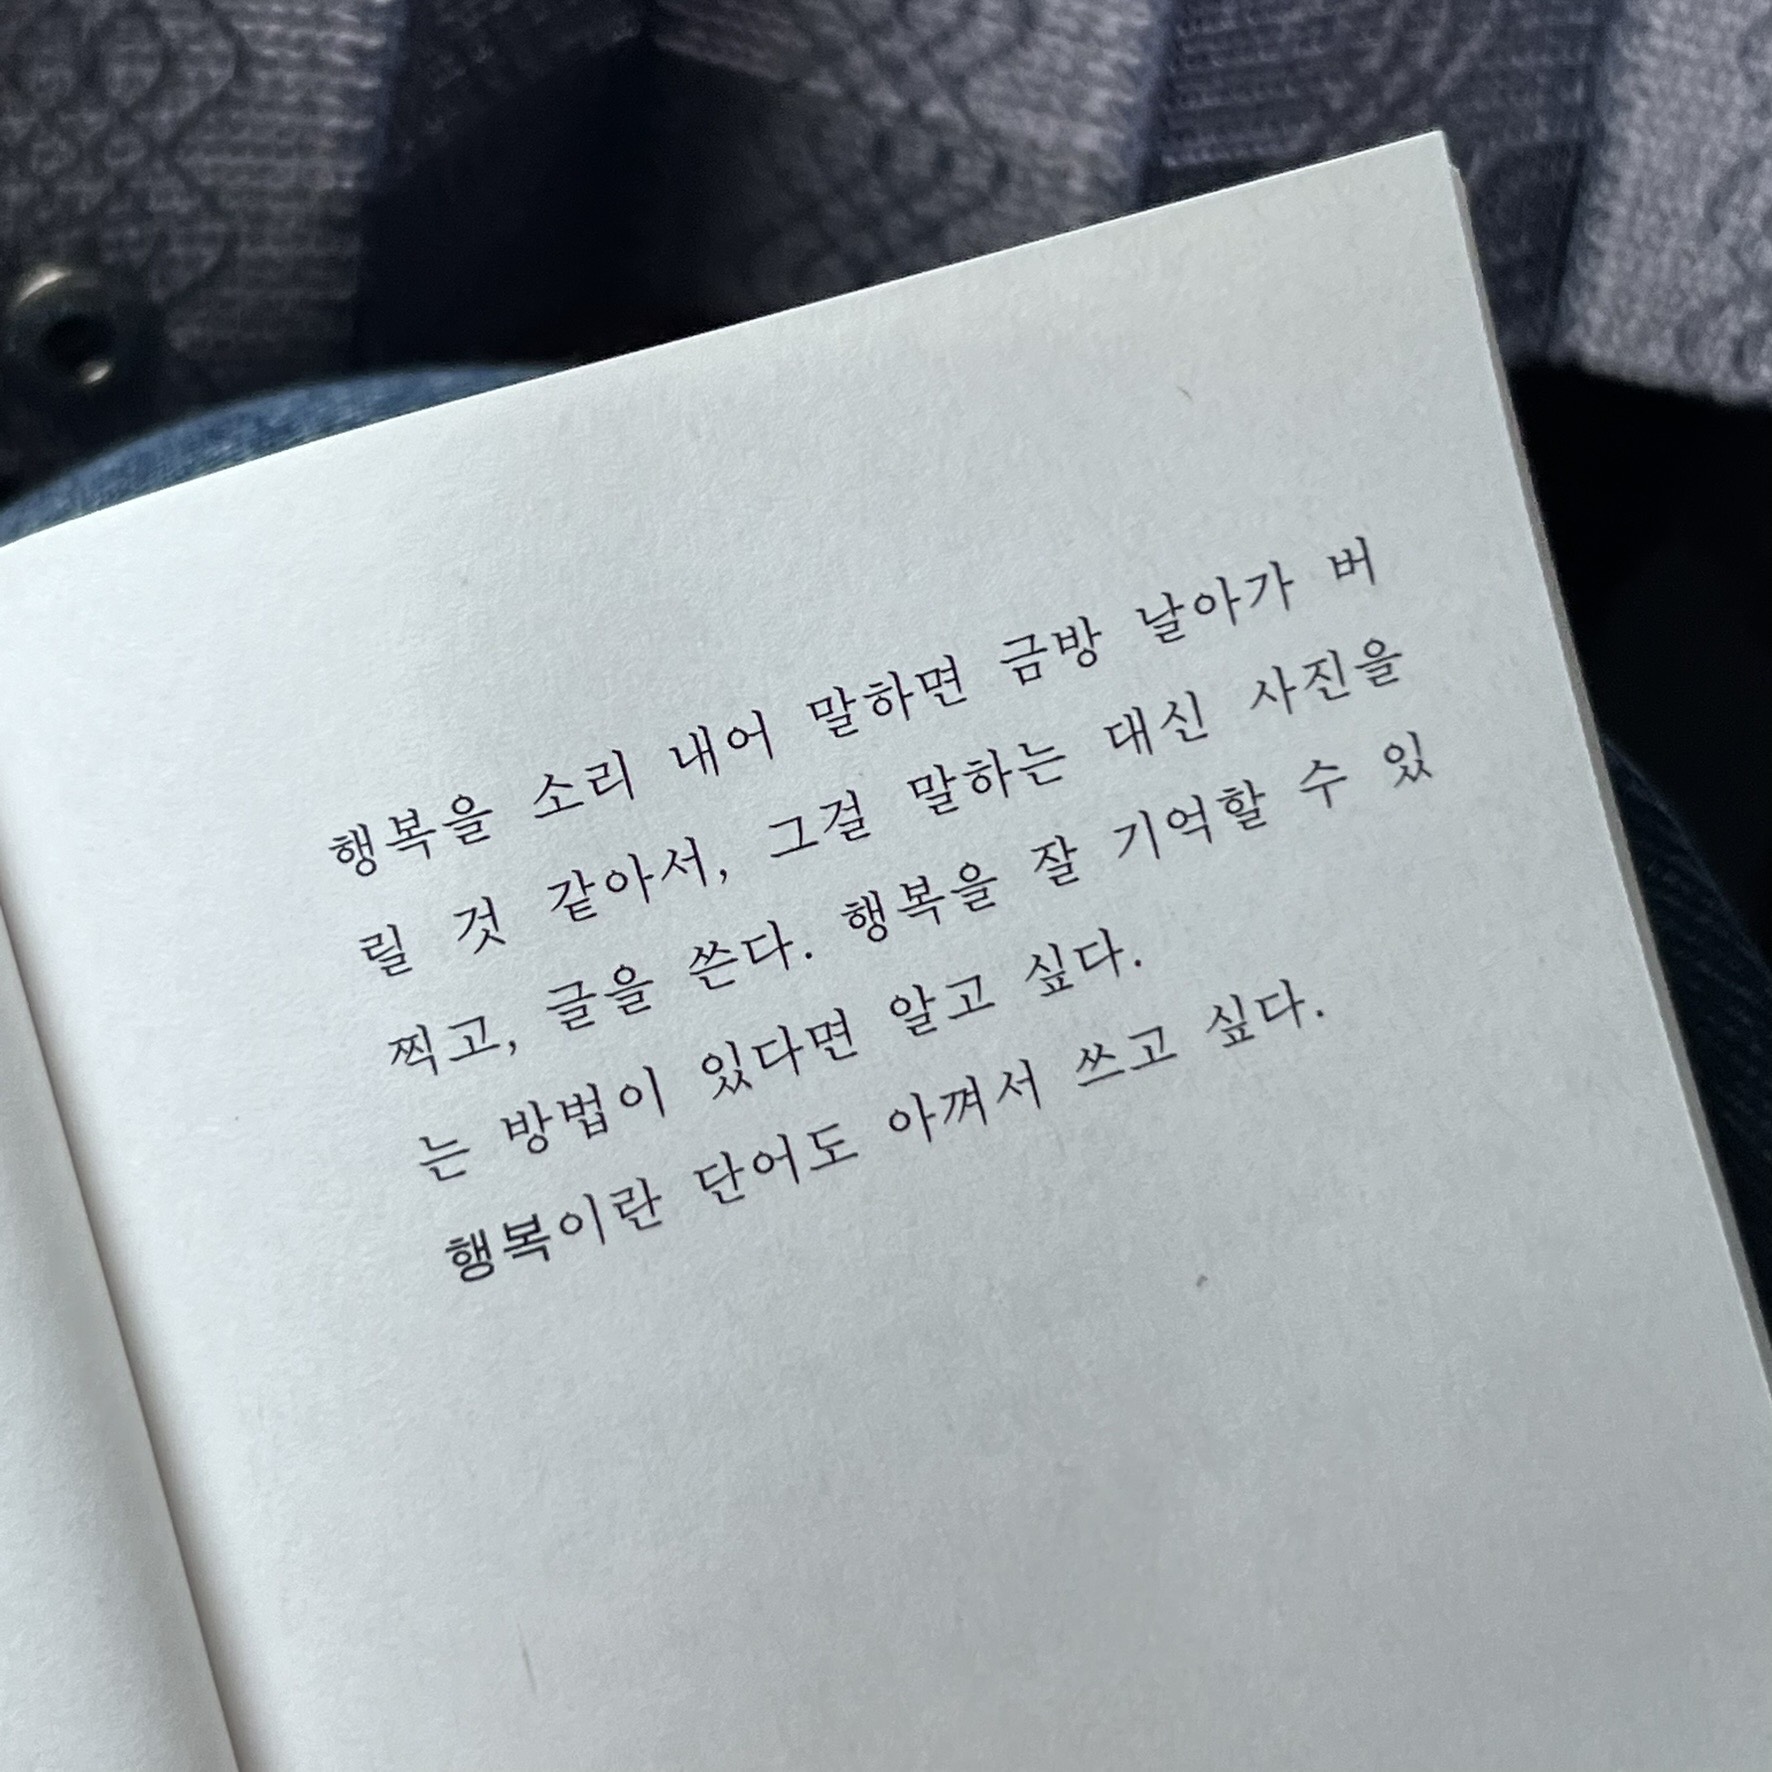 행복을 소리 내어 말하면 금방 날아가 버
릴 것 같아서, 그걸 말하는 대신 사진을
찍고, 글을 쓴다. 행복을 잘 기억할 수 있
는 방법이 있다면 알고 싶다.
행복이란 단어도 아껴서 쓰고 싶다.